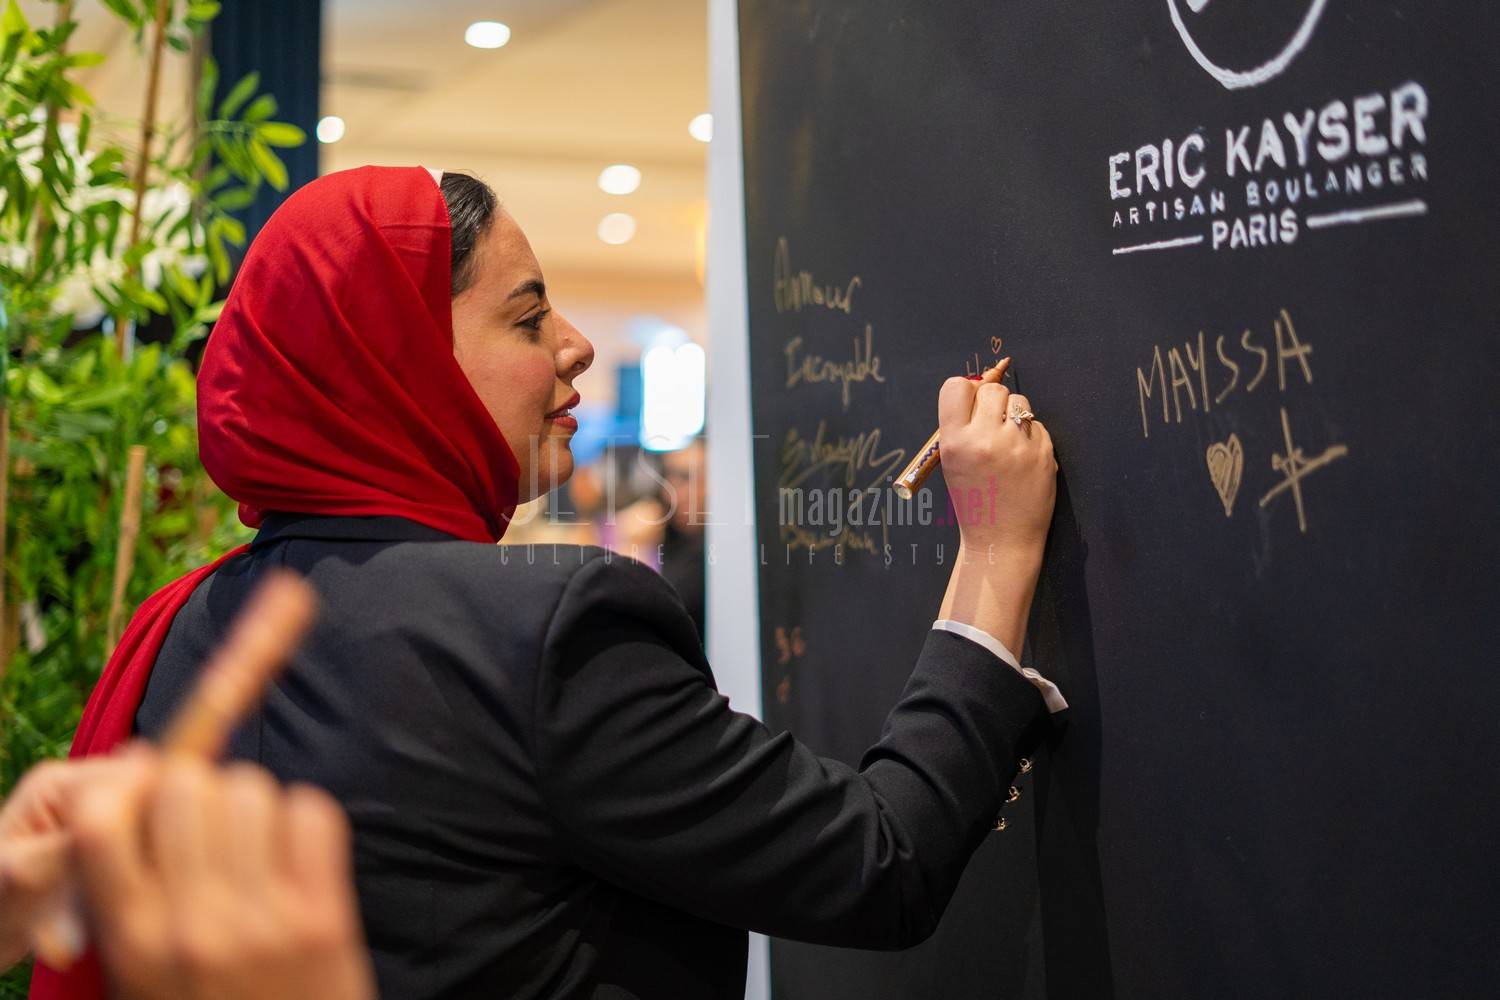 ERIC KAYSER
ARTISAN BOULANGER
PARIS
Amour
Incroyable
MAYSSA
JETSET
magazine.net
CULTURE & LIFE STYLE